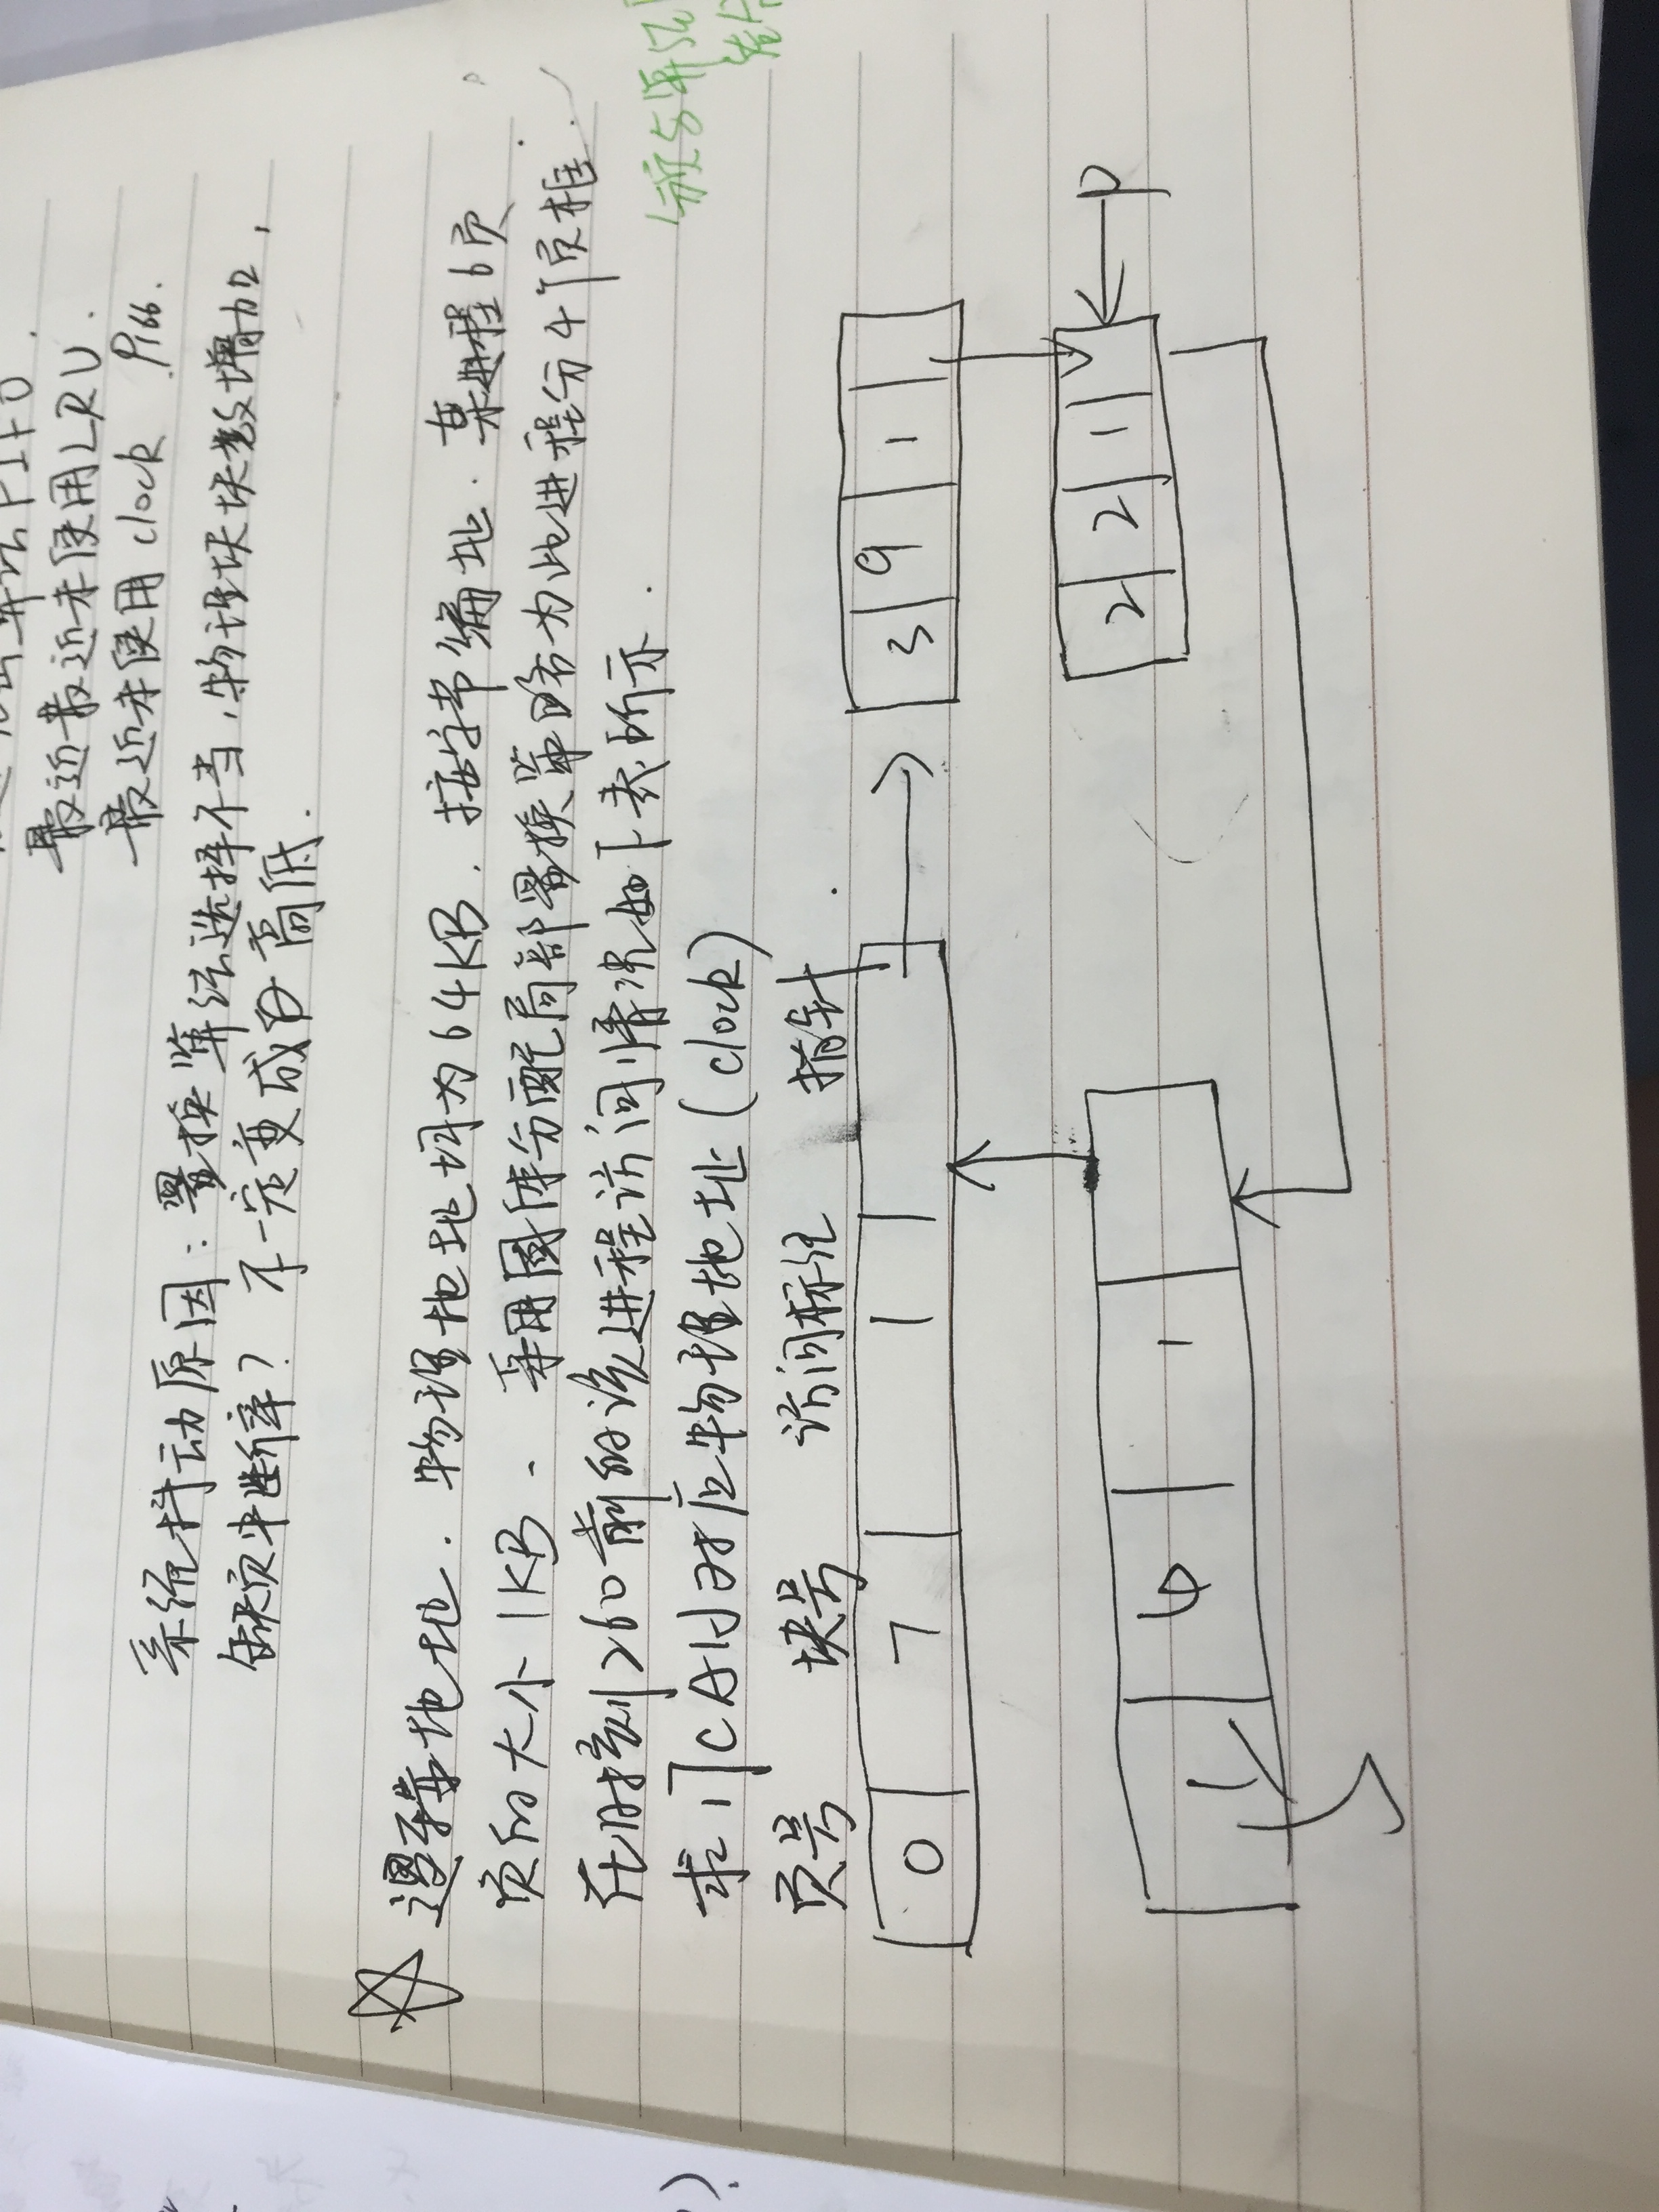 最近最近未使用LRU.
最近未使用clock P166.
系统抖动原因：置换算法选择不当，物理块块数增加，
缺页中断率？不一定变成高低.
☆ 逻辑地址.物理地址地址均为64KB.按字节编址.某进程6页
页的大小1KB.采用固定分配局部置换策略为此进程分4个页框.
在时刻260前的该进程访问情况如下表所示.
求17CAH对应物理地址(clock)
页号 块号 访问标记 指针
0 7 1
3 9 1
2 2 1 P
4 1